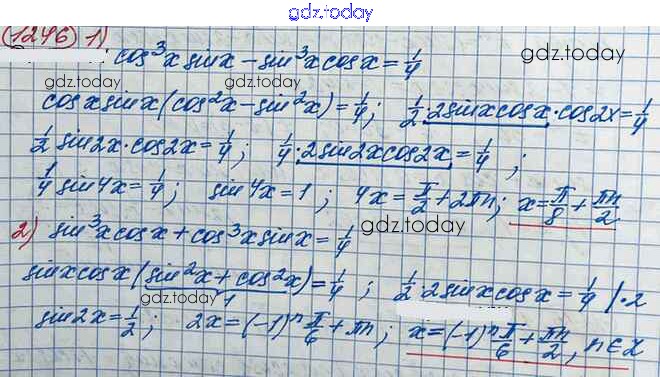 gdz.today
1246 1) cos³x sinx - sin³x cosx = 1/4 gdz.today
gdz.today gdz.today
cosx sinx (cos²x - sin²x) = 1/4; 1/2 · 2sinx cosx · cos2x = 1/4
1/2 sin2x · cos2x = 1/4; 1/4 · 2sin2x cos2x = 1/4;
1/4 sin4x = 1/4; sin4x = 1; 4x = π/2 + 2πn; x = π/8 + πn/2
2) sin³x cosx + cos³x sinx = 1/4 gdz.today
sinx cosx (sin²x + cos²x) = 1/4; 1/2 · 2sinx cosx = 1/4 | · 2
gdz.today 1
sin2x = 1/2; 2x = (-1)ⁿ π/6 + πn; x = (-1)ⁿ π/6 + πn/2, n ∈ Z
gdz.today